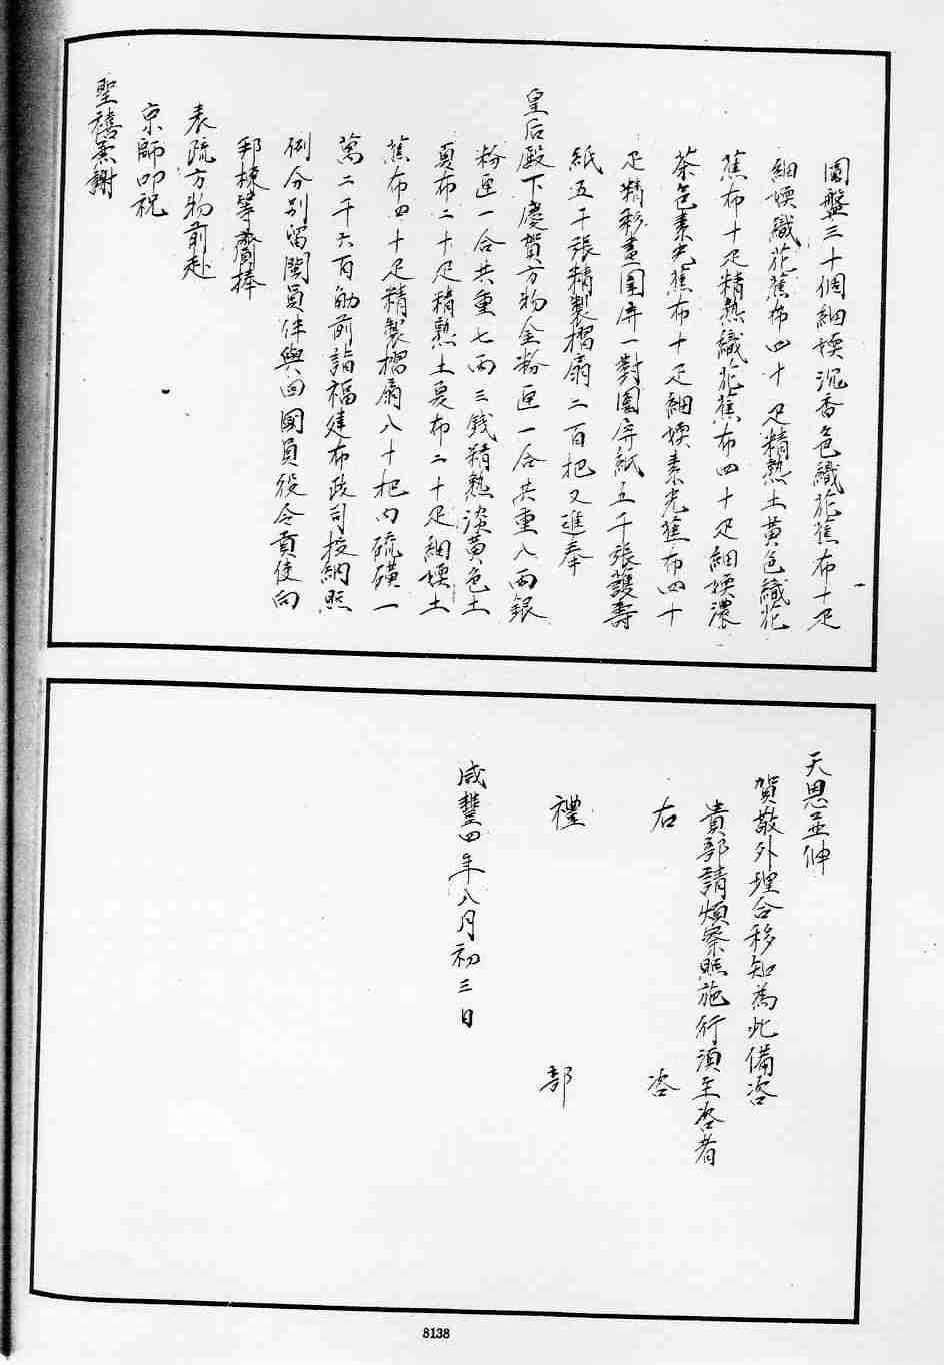 圍盤三十個細嫩沉香色織花蕉布十疋
細嫩織花蕉布四十疋精熟土黃色織花
蕉布十疋精熟織花蕉布四十疋細嫩濃
茶色素光蕉布十疋細嫩素光蕉布四十
疋精彩畫圍屏一對圍屏紙五千張護壽
紙五千張精製摺扇二百把又進奉
皇后殿下慶賀方物金粉匣一合共重八兩銀
粉匣一合共重七兩三錢精熟淡黃色土
夏布二十疋精熟土夏布二十疋細嫩土
蕉布四十疋精製摺扇八十把內硫磺一
萬二千六百觔前詣福建布政司投納照
例分別留閩員伴與回國員役令貢使向
邦棟等齎捧
表疏方物前赴
京師叩祝
聖禧兼謝
天恩並伸
賀敬外理合移知為此備咨
貴部請煩察照施行須至咨者
右 咨
禮 部
咸豐四年八月初三日
8138